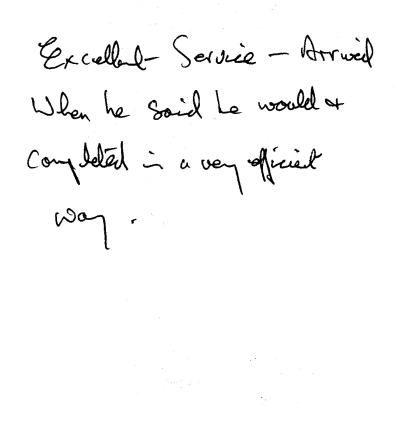 Excellent - Service - Arrived
When he said he would +
Completed in a very efficient
way.